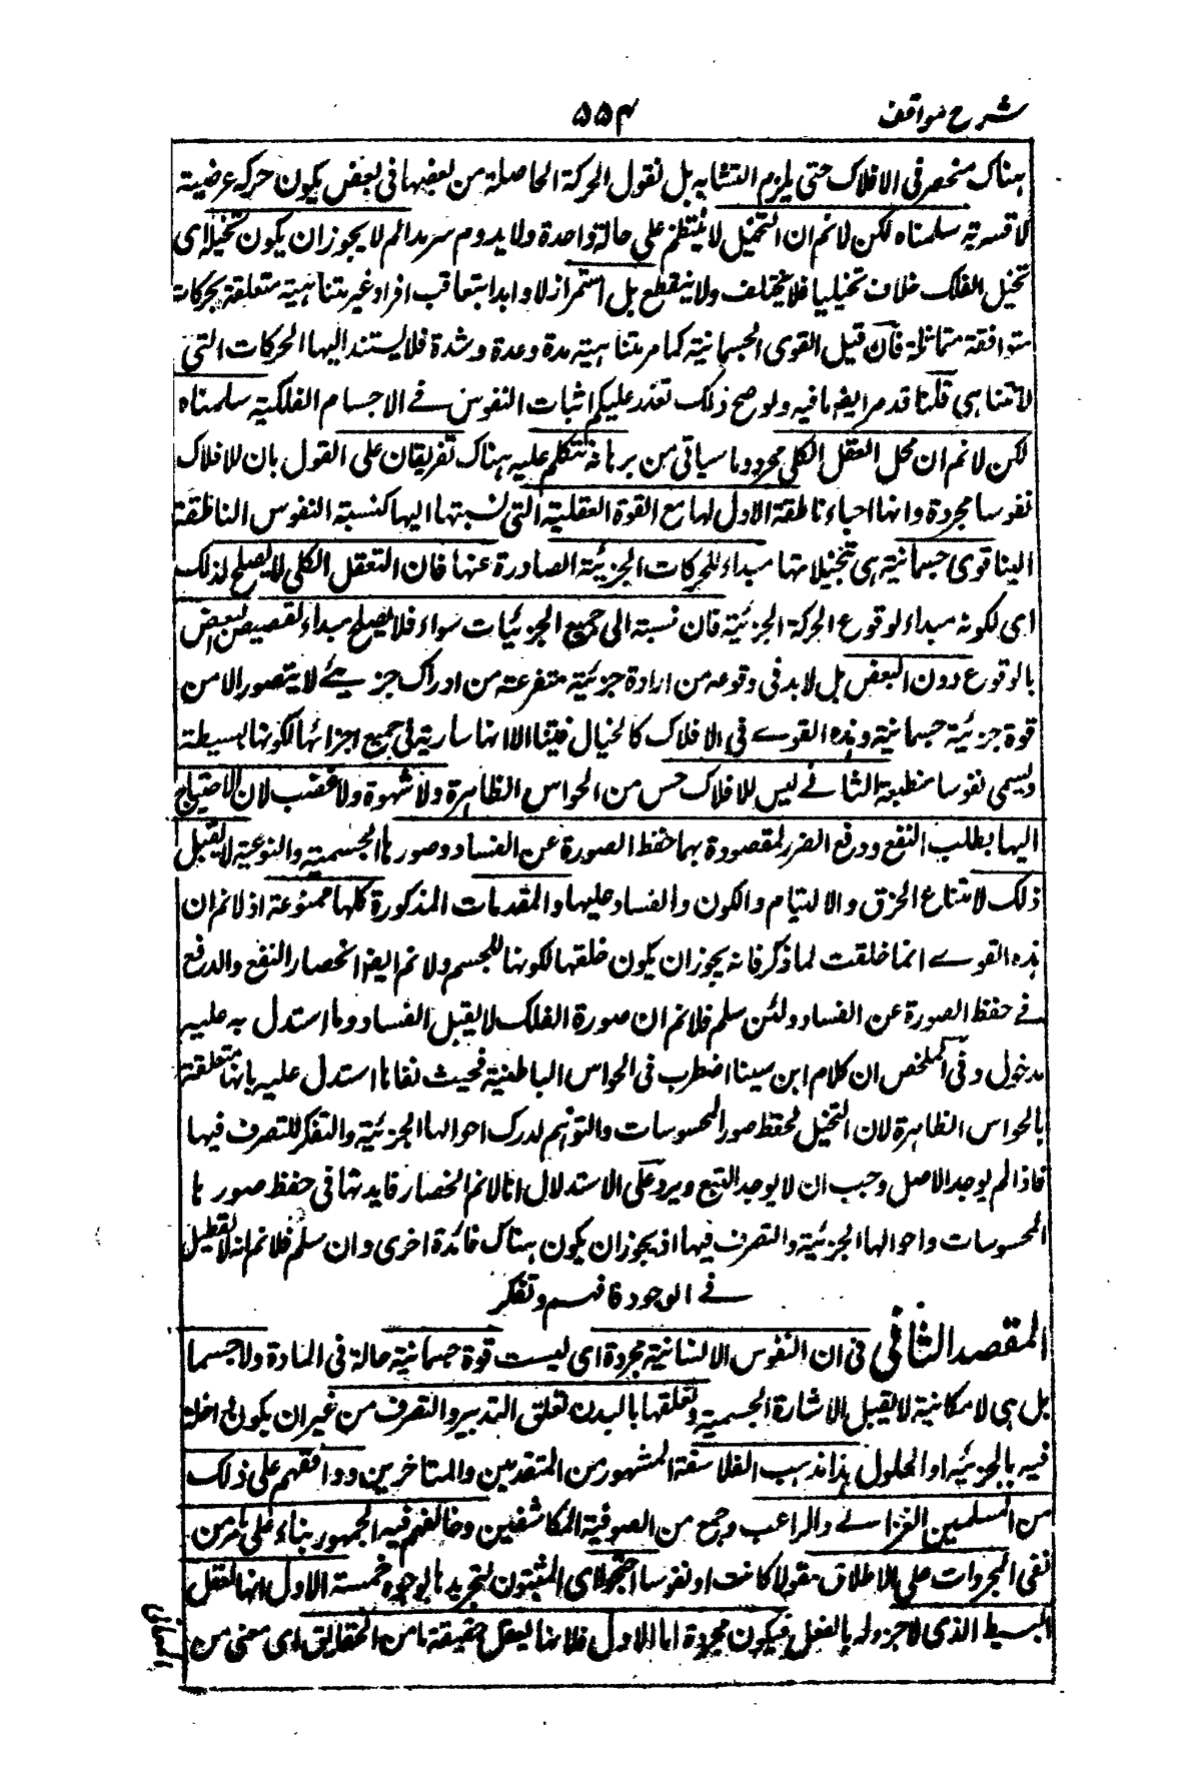 شرح مواقف
۵۵۴
هناك منحصر فى الافلاك حتى يلزم التشابه بل نقول الحركة الحاصلة من بعضها فى بعض يكون حركة عرضية
لا قسرية سلمناه لكن لانم ان التخيل لا ينتظم على حالة واحدة ولا يدوم سرمدا لم لا يجوز ان يكون تخيله اى
تخيل الفلك خلاف تخيلنا فلا يختلف ولا ينقطع بل استمر ازلا وابدا بتعاقب افراد غير متناهية متعلقة بحركات
متوافقة متماثلة فان قيل القوى الجسمانية كما مر متناهية مدة وعدة وشدة فلا يستند اليها الحركات التى
لا تتناهى قلنا قد مر ايضا ما فيه ولو صح ذلك تعذر عليكم اثبات النفوس فے الاجسام الفلكية سلمناه
لكن لانم ان محل العقل الكلى مجرد وما سياتى من برهانه نتكلم عليه هناك تفريعان على القول بان للافلاك
نفوسا مجردة وانها احياء ناطقة الاول لها مع القوة العقلية التى نسبتها اليها كنسبة النفوس الناطقة
الينا قوى جسمانية هى بتخيلاتها مبداء للحركات الجزئية الصادرة عنها فان التعقل الكلى لا يصلح لذلك
اى لكونه مبداء لوقوع الحركة الجزئية فان نسبة الى جميع الجزئيات سواء فلا يصلح مبداء لتخصيص البعض
بالوقوع دون البعض بل لا بد فى وقوعه من ارادة جزئية متفرعة من ادراك جزئے لا يتصور الا من
قوة جزئية جسمانية وهذه القوے فى الافلاك كالخيال فينا الا انها سارية فى جميع اجزائها لكونها بسيطة
ويسمى نفوسا منطبعة الثانے ليس للافلاك حس من الحواس الظاهرة ولا شهوة ولا غضب لان الاحتياج
اليها بطلب النفع ودفع الضرر المقصودة بهما حفظ الصورة عن الفساد وصورها الجسمية والنوعية لا يقبل
ذلك لامتناع الخرق والالتيام والكون والفساد عليها والمقدمات المذكورة كلها ممنوعة اذ لانم ان
هذه القوے انما خلقت لما ذكر فانه يجوز ان يكون خلقها لكونها للجسم ولانم ايضا انحصار النفع والدفع
فے حفظ الصورة عن الفساد ولئن سلم فلانم ان صورة الفلك لا يقبل الفساد وما استدل به عليه
مدخول وفى الملخص ان كلام ابن سينا اضطرب فى الحواس الباطنية فحيث نفاها استدل عليه بانها متعلقة
بالحواس الظاهرة لان التخيل لحفظ صور المحسوسات والتوهم لدرك احوالها الجزئية والتفكر للتصرف فيها
فاذا لم يوجد الاصل وجب ان لا يوجد التبع ويرد على الاستدلال انا لانم انحصار فايدتها فى حفظ صورها
المحسوسات واحوالها الجزئية والتصرف فيها اذ يجوز ان يكون هناك فائدة اخرى وان سلم فلانم انه لا تعطيل
فے الوجود فافهم وتفكر
المقصد الثانى فى ان النفوس الانسانية مجردة اى ليست قوة جسمانية حالة فى المادة ولا جسما
بل هى لا مكانية لا يقبل الاشارة الجسمية وتعلقها بالبدن تعلق التدبير والتصرف من غير ان يكون داخلة
فيه بالجزئية او الحلول هذا مذهب الفلاسفة المشهور من المتقدمين والمتاخرين ووافقهم على ذلك
من المسلمين الغزالے والراغب وجمع من الصوفية المكاشفين وخالفهم فيه الجمهور بناء على ما مر من
نفى المجردات على الاطلاق عقولا كانت او نفوسا احتجوا اى المثبتون لتجريدها بوجوه خمسة الاول انها تعقل
البسيط الذى لا جزء له بالفعل فيكون مجردة اما الاول فلانها تعقل حقيقة ما من الحقائق اى معنى من